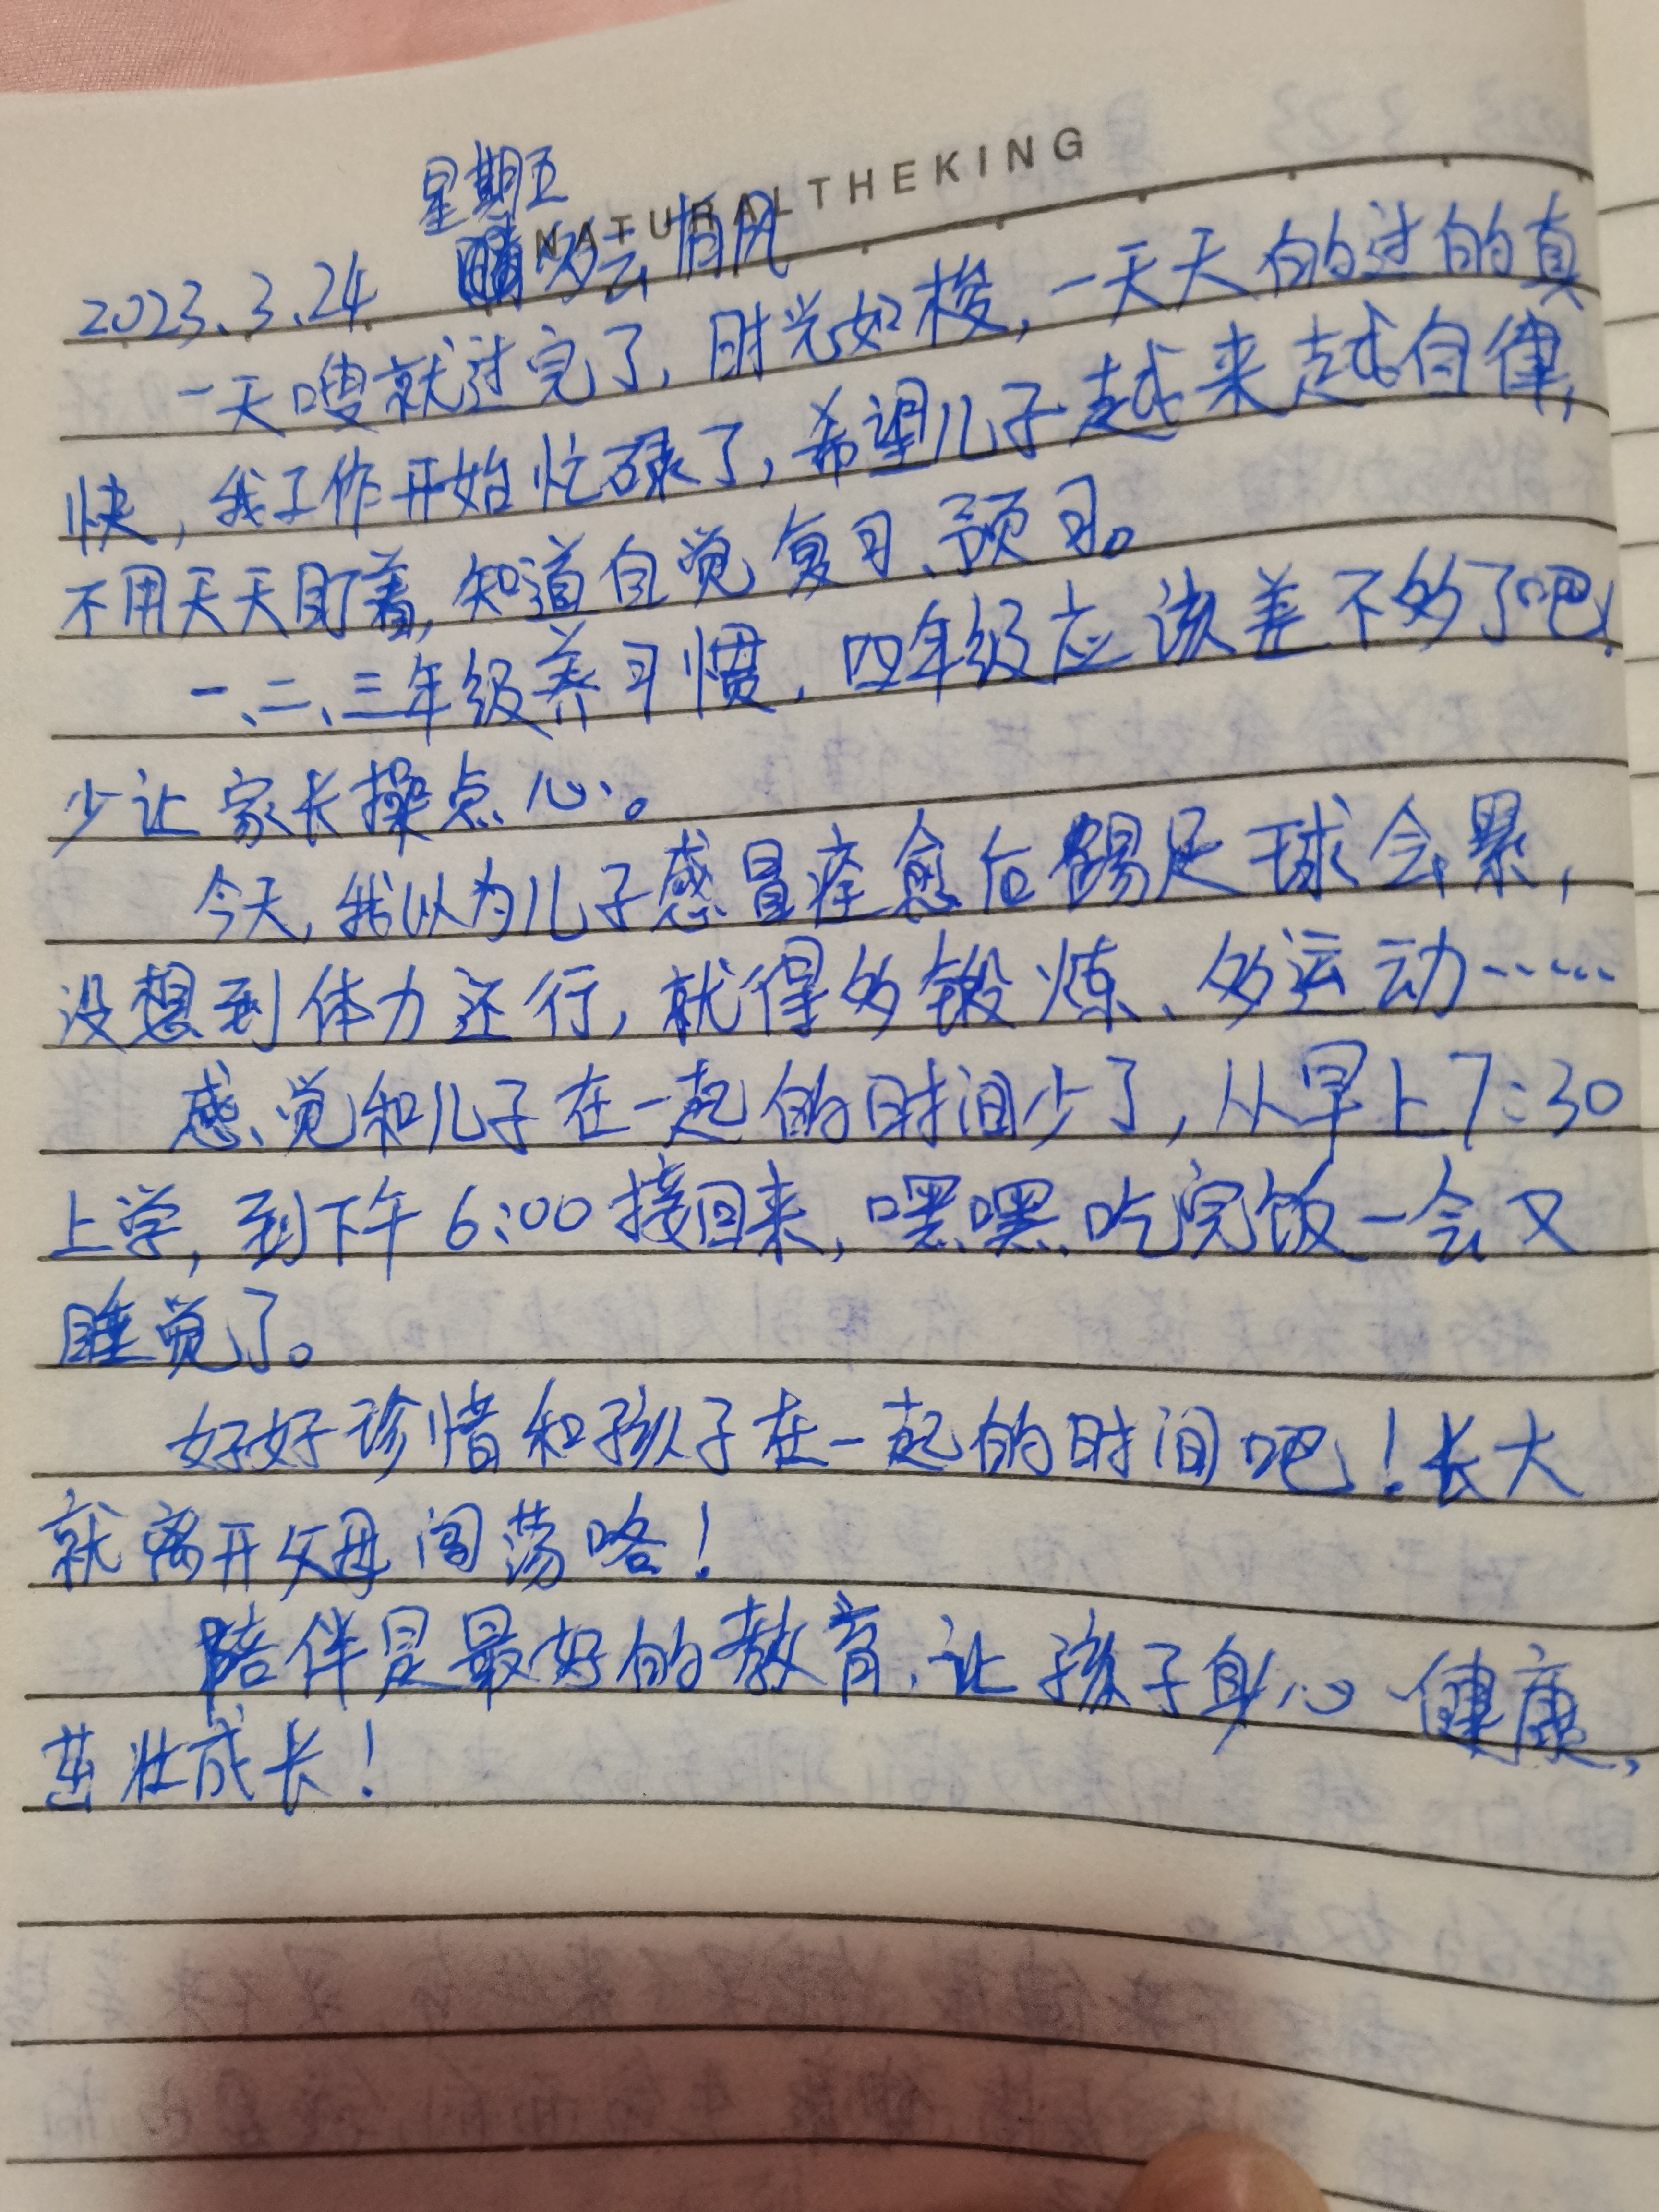 NATURALTHEKING
星期五
2023.3.24 多云有风
一天嗖就过完了，时光如梭，一天天的过的真
快，我工作开始忙碌了，希望儿子越来越自律，
不用天天盯着，知道自觉复习、预习。
一、二、三年级养习惯，四年级应该差不多了吧！
少让家长操点心。
今天，我以为儿子感冒痊愈后踢足球会累，
没想到体力还行，就得多锻炼、多运动……
感觉和儿子在一起的时间少了，从早上7:30
上学，到下午6:00接回来，嘿嘿，吃完饭一会又
睡觉了。
好好珍惜和孩子在一起的时间吧！长大
就离开父母闯荡咯！
陪伴是最好的教育，让孩子身心健康，
茁壮成长！